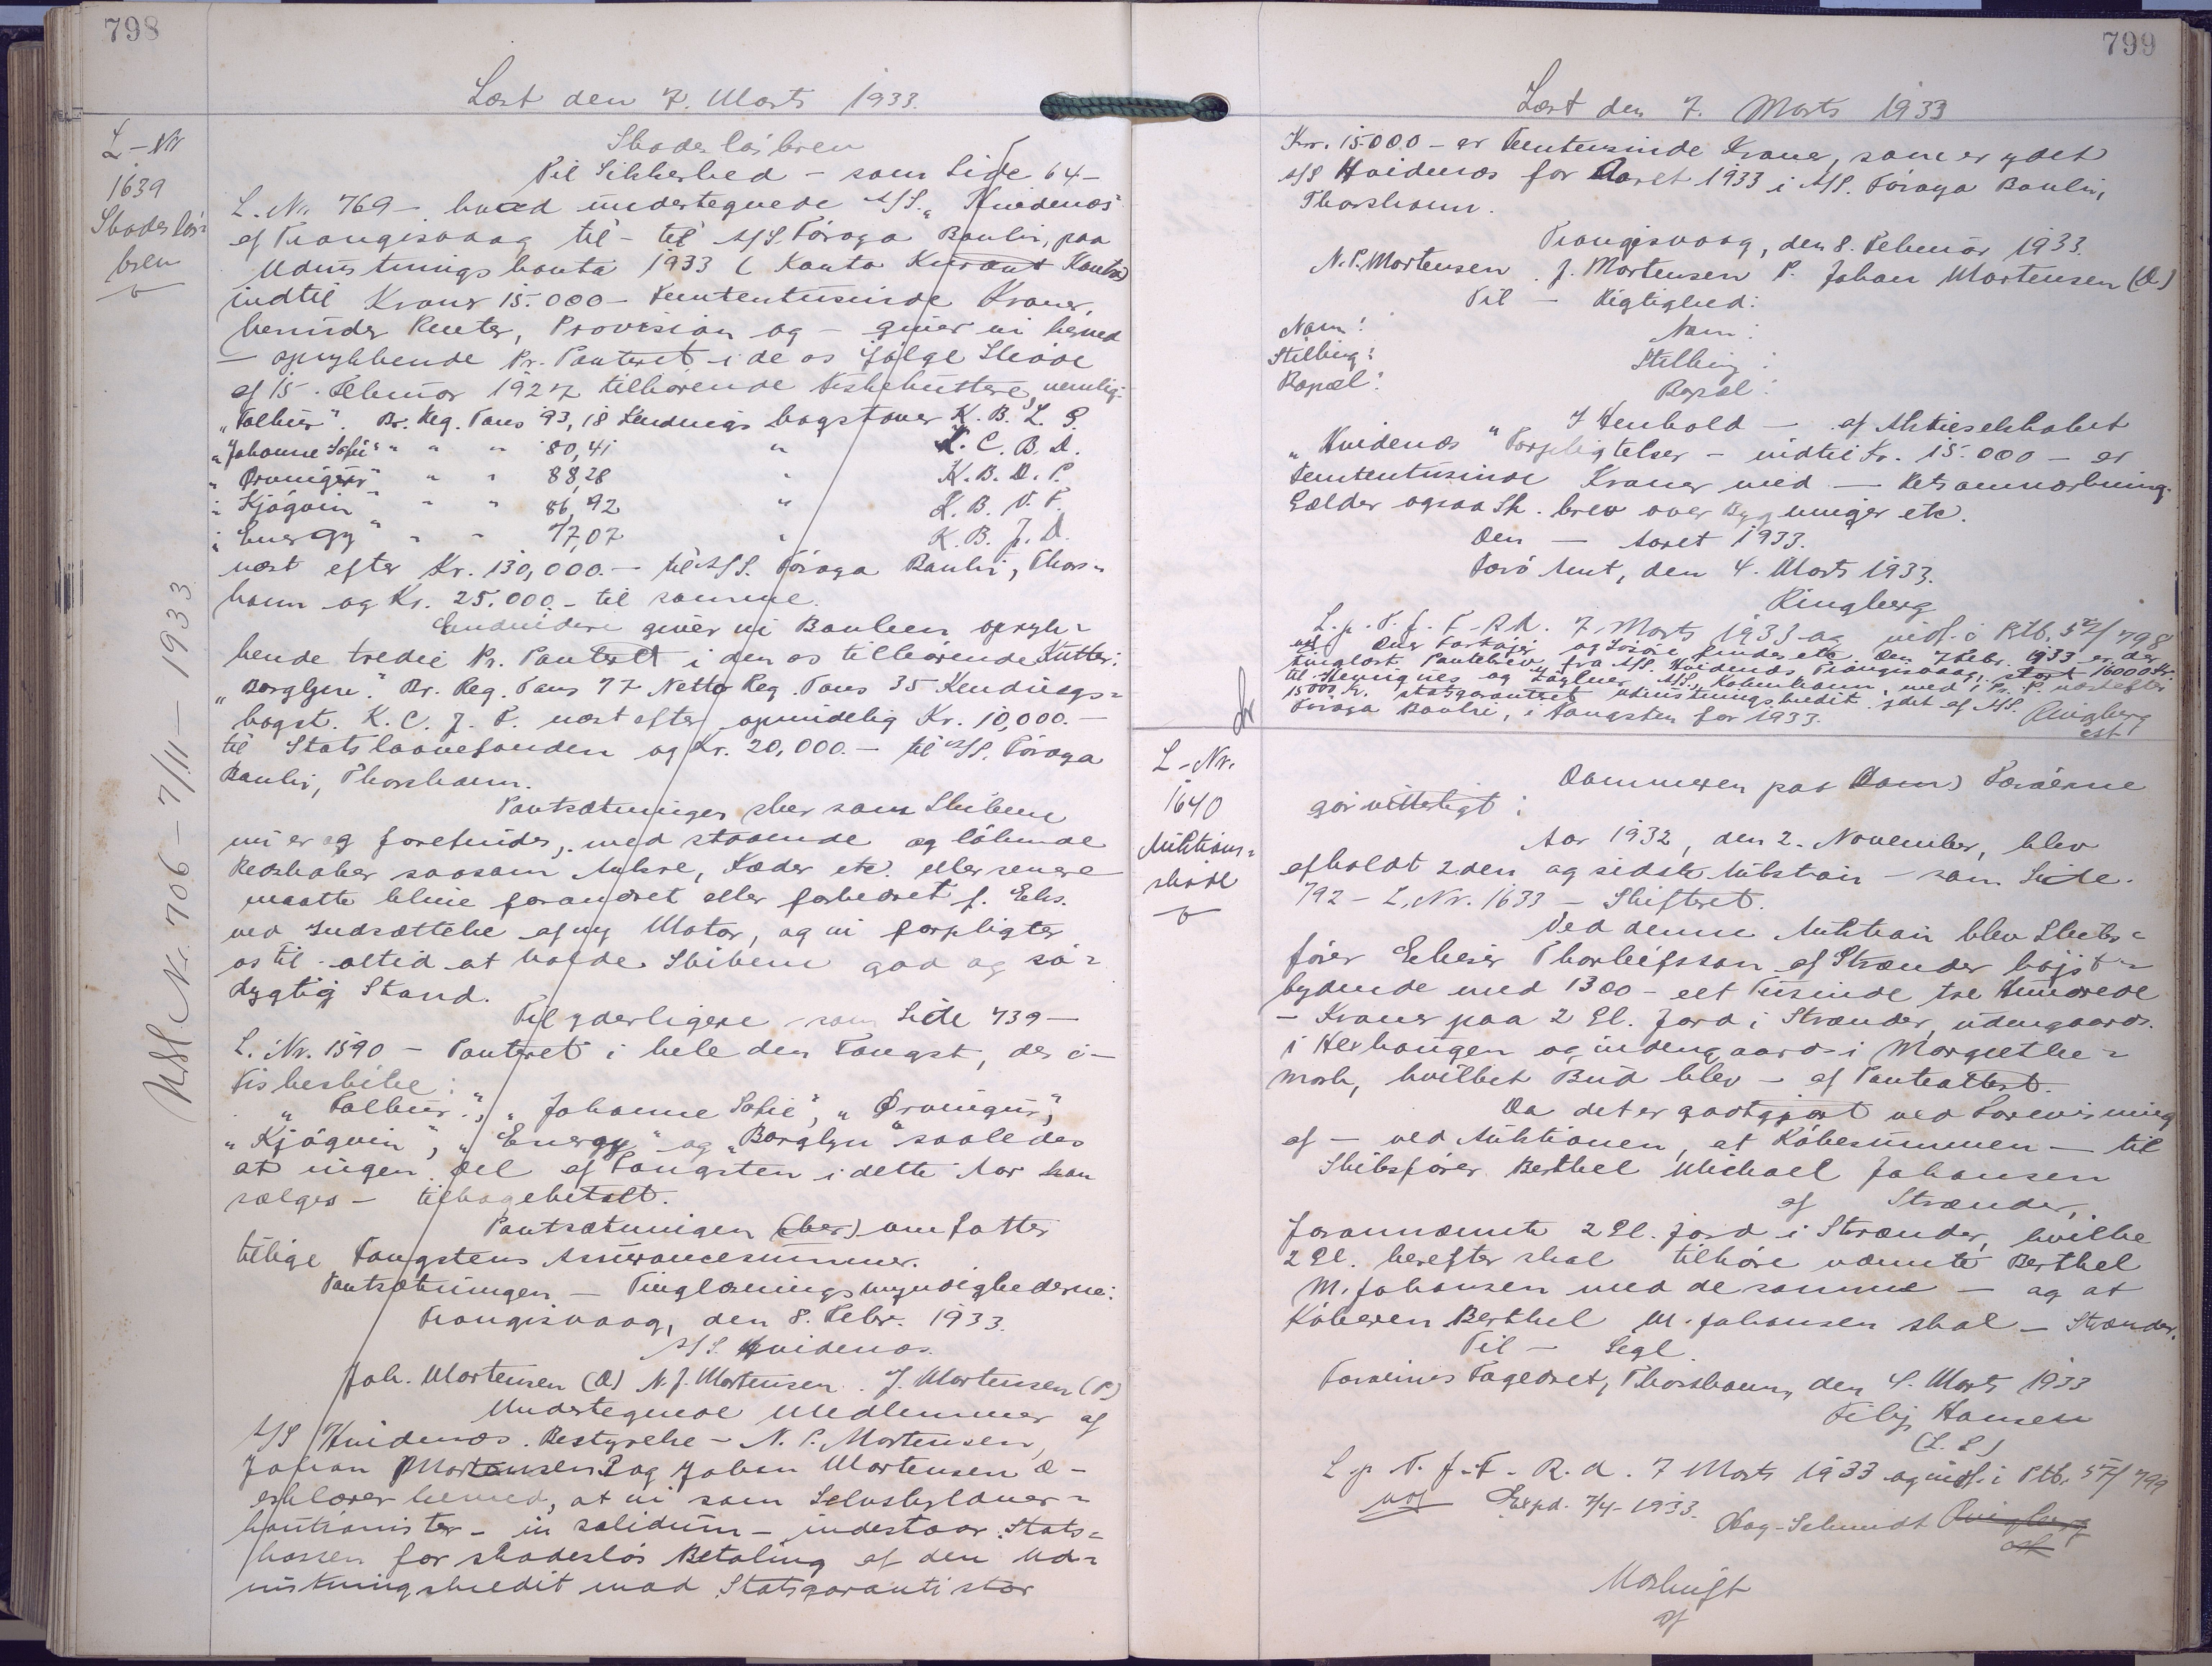 798
Læst den 7. Marts 1933.
L-Nr
1639
Skadeslös-
brev
Skadeslösbrev
Til Sikkerhed - som Side 64-
L. Nr. 769 - hvad undertegnede A/S. "Hvidenæs"
af Trangisvaag til - til A/S. Föroya Banki, paa
Udrustningskonto 1933 (Konto Kurant Konto)
indtil Kroner 15.000 - Femtentusinde Kroner,
herunder Renter, Provision og - giver vi herved
- oprykkende Pr. Panteret i de os ifölge Sködе
af 15. Februar 1927 tilhörende Fiskekuttere, nemlig:
"Falkur". Br. Reg. Tons 93,18 Kendings bogstaver K. B. L. S.
"Johanne Sofie" " " " 80,41 " K. C. B. D.
"Örvingur" " " 88,28 " K. B. D. P.
"Kjögvin" " " 86,92 " K. B. V. F.
"Energy" " " 77,07 " K. B. J. D.
næst efter Kr. 130,000.- til A/S. Föroya Banki, Thors-
havn og Kr. 25.000.- til samme.
Endvidere giver vi Banken opryk-
kende tredie Pr. Panteret i den os tilhörende Kutter:
"Borglyn." Br. Reg. Tons 77 Netto Reg. Tons 35 Kendings-
bogst. K. C. J. P. næst efter oprindelig Kr. 10,000.-
til Statslaanefonden og Kr. 20,000.- til A/S. Föroya
Banki, Thorshavn.
Pantsætningen sker som Skibene
nu er og forefindes, med staaende og löbende
Redskaber saasom Ankre, Kæder etc. eller senere
maatte blive forandret eller forbedret f. Eks.
ved Indsættelse af ny Motor, og vi forpligter
os til altid at holde Skibene god og sö-
dygtig Stand.
Til yderligere som Side 739 -
L. Nr. 1590 - Panteret i hele den Fangst, der i -
Fiskeskibe:
"Falkur", "Johanne Sofie", "Örvingur",
"Kjögvin", "Energy" og "Borglyn" saaledes
at ingen Del af Fangsten i dette Aar kan
sælges - tilbagebetalt.
Pantsætningen (her) omfatter
tillige Fangstens Assurancesummer.
Pantsætningen - Tinglæsningsmyndighederne:
Trangisvaag, den 8. Febr. 1933.
A/S. Hvidenæs.
Joh. Mortensen (D) N. J. Mortensen. J. Mortensen (P)
Undertegnede Medlemmer af
A/S Hvidenæs. Bestyrelse - N. P. Mortensen,
Johan Mortensen P og Johan Mortensen D -
erklærer herved, at vi som Selvskyldner-
kautionister - in solidum - indestaar Stats-
kassen for skadeslös Betaling af den Ud-
rustningskredit mod Statsgaranti stor
Nr. 706 - 7/11 - 1933
799
Læst den 7. Marts 1933
Kr. 15.000 - er Femtentusinde Kroner, som er ydet
A/S Hvidenæs for Aaret 1933 i A/S. Föroya Banki,
Thorshavn.
Trangisvaag, den 8. Februar 1933.
N. P. Mortensen. J. Mortensen P. Johan Mortensen (D)
Til - Rigtighed:
Navn: Navn:
Stilling: Stilling:
Bopæl: Bopæl:
I Henhold - af Aktieselskabet
"Hvidenæs" Forpligtelser - indtil Kr. 15.000 - er
Femtentusinde Kroner med - Retsanmærkning.
Gælder ogsaa Sk. brev over Bygninger etc.
Den - Aaret 1933.
Færö Amt, den 4. Marts 1933.
Ringberg
L. p. T. f. F. R. d. 7 Marts 1933 og indf. i Ptb. 5 Z/798
Den 7 Febr. 1933 er der
tinglæst Pantebrev fra A/S. Hvidenæs Trangisvaag, stort 16000 Kr.
til Henriques og Zöylner A/S., København, med 1 Pr. P. næstefter
15000 Kr. statsgaranteret udrustningskredit ydet af A/S.
Föroya Banki, i Fangsten for 1933.
Ringberg
cst.
L-Nr.
1640
Auktions-
sköde
Dommeren paa (Dom) Færöerne
gör vitterligt:
Aar 1932, den 2. November, blev
afholdt 2den og sidste Auktion - som Side
792 - L. Nr. 1633 - Skifteret.
Ved denne Auktion blev Skibs-
förer Thorleifsson af Strænder höjst-
bydende med 1300 - eet Tusinde tre Hundrede
- Kroner paa 2 Gl. Jord i Strænder, udengaards
i Heyhougen og indengaards i Margrethe-
mork, hvilket Bud blev - af Panteattest.
Da det er godtgjort ved Forevisning
af - ved Auktionen, at Köbesummen - til
Skibsförer Berthel Michael Johansen
af Strænder,
forannævnte 2 Gl. jord i Strænder, hvilke
2 Gl. herefter skal tilhöre nævnte Berthel
M. Johansen med de samme - og at
Köberen Berthel M. Johansen skal - Strænder.
Til - Segl.
Færöernes Fogedret, Thorshavn, den 4. Marts 1933
Hansen
(L. S.)
L p T. f. F. R. d. 7 Marts 1933 og indf. i Ptb. 5 Z/799
Expd. 7/4-1933.
Hag-Schmidt Ringberg
cst